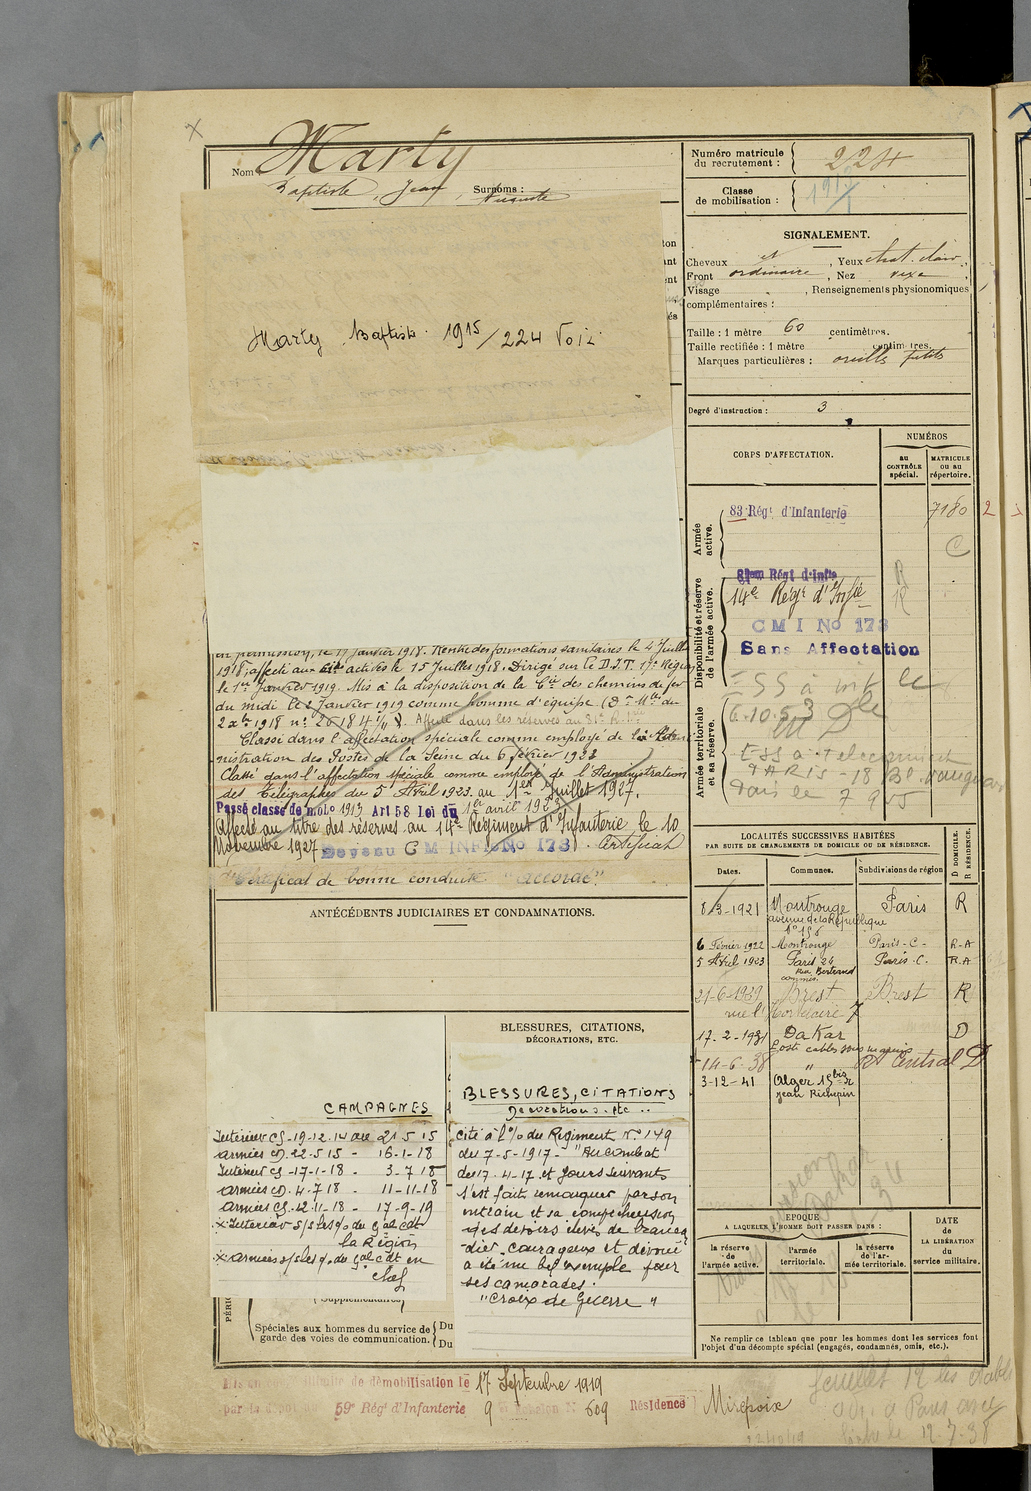 Nom Marty
Baptiste, Jean, Auguste Surnoms :
Numéro matricule
du recrutement : 224
Classe
de mobilisation :
SIGNALEMENT.
Cheveux , Yeux chat. clair ,
Front ordinaire , Nez
Visage , Renseignements physionomiques
complémentaires :
Taille : 1 mètre 60 centimètres.
Taille rectifiée : 1 mètre centimètres.
Marques particulières : oreilles petites
Degré d'instruction : 3
Marty Baptiste 1915/224
CORPS D'AFFECTATION.
NUMÉROS
au
CONTRÔLE
spécial.
MATRICULE
ou au
répertoire.
Armée
active.
83 Régt d'Infanterie 7180
Disponibilité et réserve
de l'armée active.
81em Régt d'Infie
14e Régt d'Infie
CMI No 173
Sans Affectation
Armée territoriale
et sa réserve.
6.10.53
PARIS - 18 Bd
en permission, le 17 janvier 1918. Rentré des formations sanitaires le 4 Juillet
1918, affecté aux Cie actives le 15 Juillet 1918. Dirigé sur le D.I.T. 17e Région
le 1er Janvier 1919. Mis à la disposition de la Cie des chemins de fer
du midi le 2 Janvier 1919 comme homme d'équipe
2 Xbre 1918 no 20184 Affecté dans les réserves au 81e R.I.
Classé dans l'affectation spéciale comme employé de l'Admi-
nistration des Postes de la Seine du 6 février 1922
Classé dans l'affectation spéciale comme employé de l'Administration
des Télégraphes du 5 Avril 1923 au 1er Juillet 1927.
Passé classe de mob. 1913 Art 58 Loi du 1er avril 1923
Affecté au titre des réserves au 14e Régiment d'Infanterie le 10
Novembre 1927 Devenu CM INFIE No 173. Certificat
Certificat de bonne conduite "accordé".
ANTÉCÉDENTS JUDICIAIRES ET CONDAMNATIONS.
LOCALITÉS SUCCESSIVES HABITÉES
PAR SUITE DE CHANGEMENTS DE DOMICILE OU DE RÉSIDENCE.
D DOMICILE.
R RÉSIDENCE.
Dates. Communes. Subdivisions de région
8/3-1921 Montrouge Paris R
avenue de la République
No 156
6 Février 1922 Montrouge Paris-C- R-A
5 Avril 1923 Paris 24 Paris-C. R.A
Rue Bertrand
21-6-1929 Brest Brest R
rue 7
17-2-1931 Dakar D
Poste cables sous marins
14-6-38 " Rt Central D
3-12-41 Alger 15 bis r
Jean Richepin
CAMPAGNES
Intérieur CS-19-12-14 au 21 5 15
armées CD. 22-5 15 - 16-1-18
Intérieur CS -17-1-18 - 3-7 18
armées CD. 4-7 18 - 11-11-18
armées CS. 12-11-18 - 17-9-19
x Intérieur s/s les q. du gal cdt
la Région
x armées s/s les q. du gal cdt en
chef
BLESSURES, CITATIONS,
DÉCORATIONS, ETC.
BLESSURES, CITATIONS
Décorations. etc ..
Cité à l'% du Régiment No 149
du 7-5-1917- "Au combat
du 17-4-17 et jours suivants
s'est fait remarquer par son
entrain et sa compréhension
des devoirs élevés de brancar-
-dier, courageux et dévoué
a été un bel exemple pour
ses camarades.
"Croix de Guerre "
EPOQUE
A LAQUELLE L'HOMME DOIT PASSER DANS :
la réserve
de
l'armée active.
l'armée
territoriale.
la réserve
de l'ar-
mée territoriale.
DATE
de
LA LIBÉRATION
du
service militaire.
Spéciales aux hommes du service de
garde des voies de communication.
Du
Du
Ne remplir ce tableau que pour les hommes dont les services font
l'objet d'un décompte spécial (engagés, condamnés, omis, etc.).
Mis en congé illimité de démobilisation le 17 Septembre 1919
par le dépôt du 59e Régt d'Infanterie 9e Echelon No 609 Résidence Mirepoix